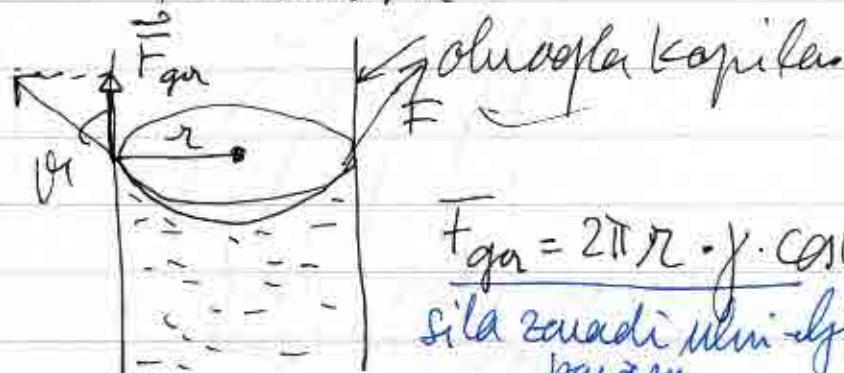 F gor
okrogla kapilar
F
r
ϑ
F gor = 2πr · γ · cos
sila zaradi